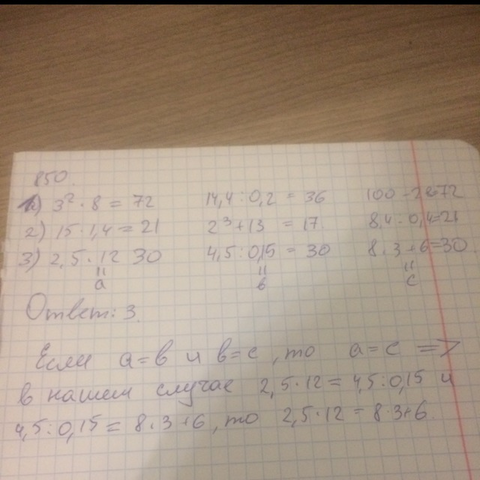 850.
1) 3² · 8 = 72 14,4 : 0,2 = 36 100 - 28=72
2) 15 · 1,4 = 21 2³ + 13 = 17 8,4 : 0,4=21
3) 2,5 · 12 30 4,5 : 0,15 = 30 8 · 3 + 6=30
a в c
Ответ: 3.
Если a=в и в=c, то a=c =>
в нашем случае 2,5 · 12 = 4,5 : 0,15 и
4,5 : 0,15 = 8 · 3 +6, то 2,5 · 12 = 8 · 3+6